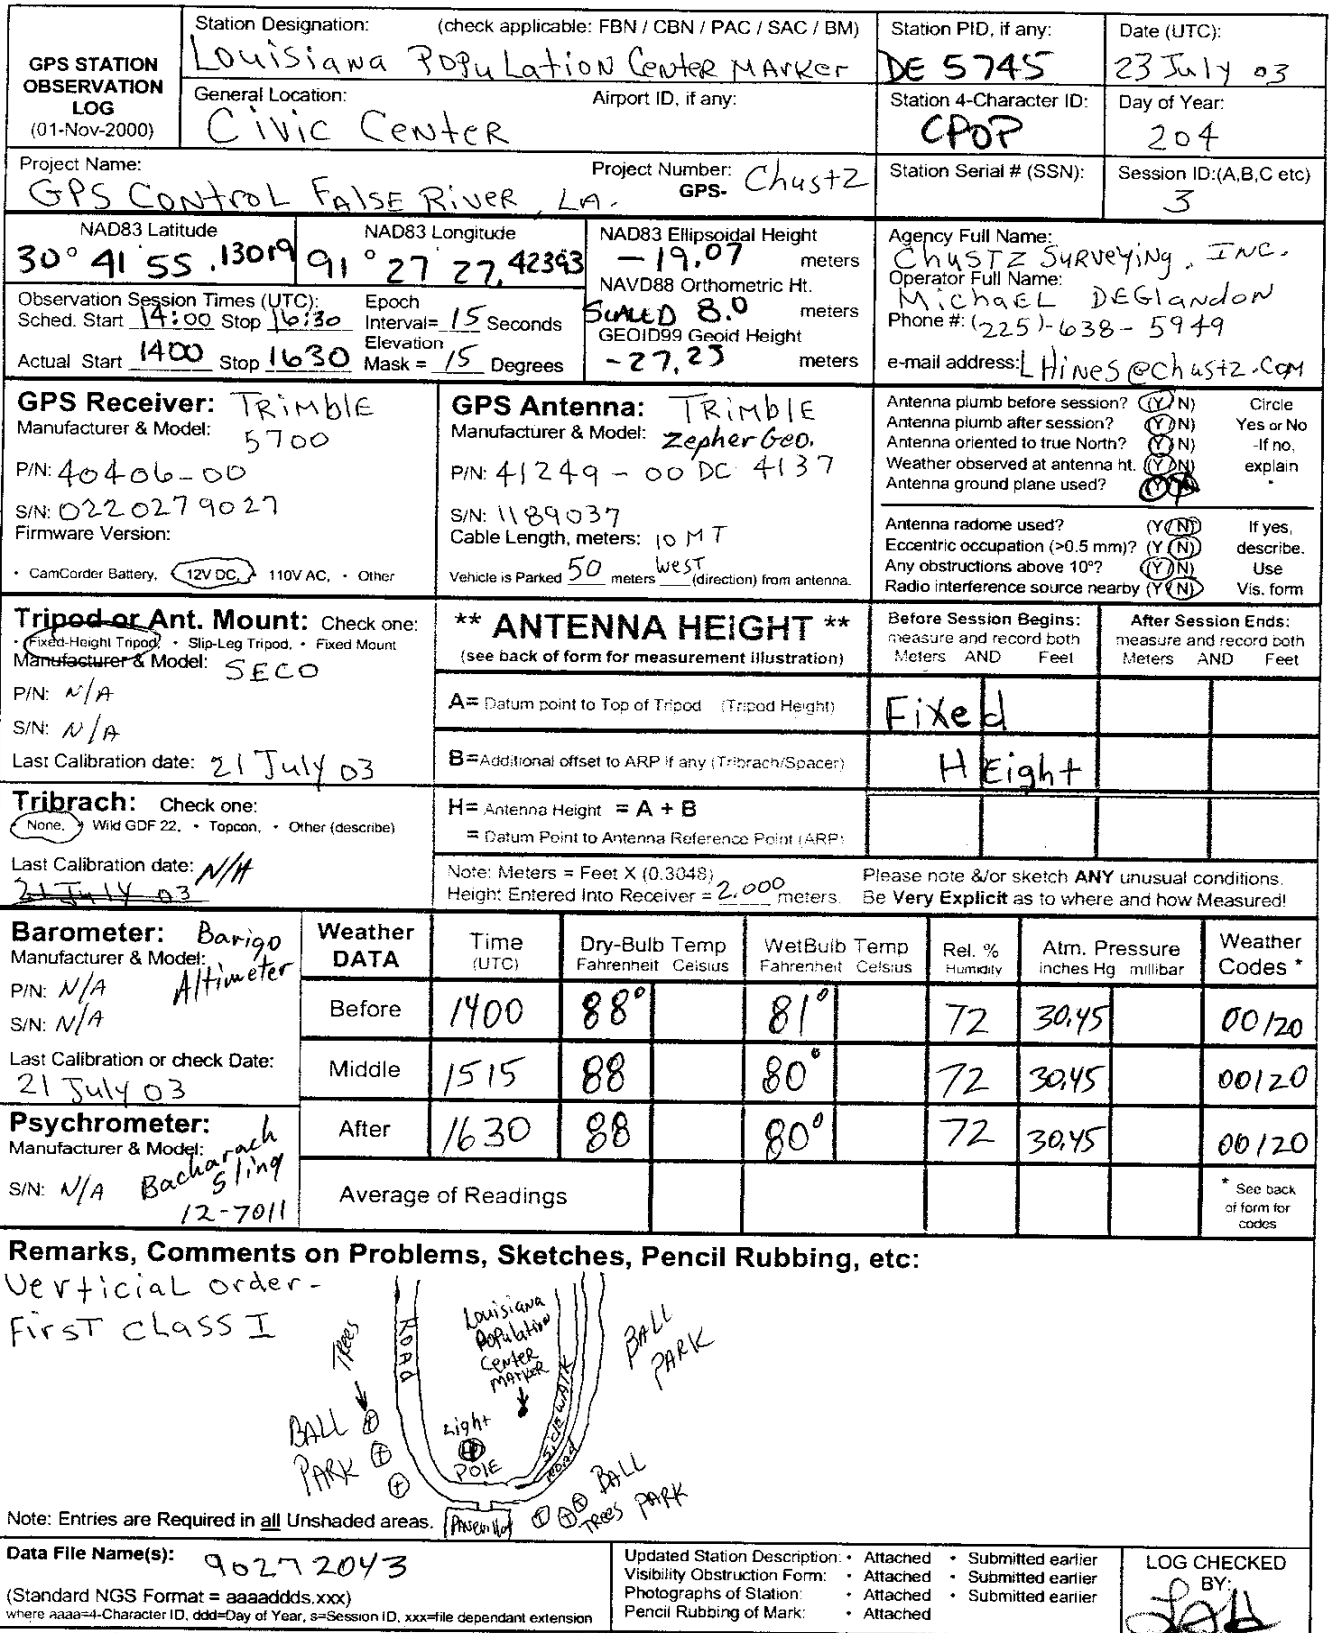 GPS STATION OBSERVATION LOG (01-Nov-2000)
Station Designation: (check applicable: FBN / CBN / PAC / SAC / BM)
Louisiana Population Center Marker
Station PID, if any:
DE 5745
Date (UTC):
23 July 03
General Location: Airport ID, if any:
Civic Center
Station 4-Character ID:
CPOP
Day of Year:
204
Project Name:
GPS Control False River, LA.
Project Number: GPS- Chustz
Station Serial # (SSN):
Session ID:(A,B,C etc)
3
NAD83 Latitude
30° 41 55 .13019
NAD83 Longitude
91 ° 27 27. 42393
NAD83 Ellipsoidal Height
-19.07 meters
NAVD88 Orthometric Ht.
SCALED 8.0 meters
GEOID99 Geoid Height
-27.23 meters
Agency Full Name:
Chustz Surveying, INC.
Operator Full Name:
Michael DEGlandon
Phone #: (225)-638-5949
e-mail address: LHines@chustz.com
Observation Session Times (UTC):
Sched. Start 14:00 Stop 16:30
Actual Start 1400 Stop 1630
Epoch
Interval= 15 Seconds
Elevation
Mask = 15 Degrees
GPS Receiver: TRimblE
Manufacturer & Model: 5700
P/N: 40406-00
S/N: 0220279027
Firmware Version:
• CamCorder Battery, • 12V DC, • 110V AC, • Other
GPS Antenna: TRimblE
Manufacturer & Model: Zepher Geo.
P/N: 41249-00 DC 4137
S/N: 1189037
Cable Length, meters: 10 MT
Vehicle is Parked 50 meters west (direction) from antenna.
Antenna plumb before session? (Y / N) Circle
Antenna plumb after session? (Y / N) Yes or No
Antenna oriented to true North? (Y / N) -If no,
Weather observed at antenna ht. (Y / N) explain
Antenna ground plane used? (Y / N) .
Antenna radome used? (Y / N) If yes,
Eccentric occupation (>0.5 mm)? (Y / N) describe.
Any obstructions above 10°? (Y / N) Use
Radio interference source nearby (Y / N) Vis. form
Tripod or Ant. Mount: Check one:
• Fixed-Height Tripod, • Slip-Leg Tripod, • Fixed Mount
Manufacturer & Model: SECO
P/N: N/A
S/N: N/A
Last Calibration date: 21 July 03
** ANTENNA HEIGHT **
(see back of form for measurement illustration)
Before Session Begins:
measure and record both
Meters AND Feet
After Session Ends:
measure and record both
Meters AND Feet
A= Datum point to Top of Tripod (Tripod Height)
Fixed
B=Additional offset to ARP if any (Tribrach/Spacer)
HEight
Tribrach: Check one:
None, • Wild GDF 22, • Topcon, • Other (describe)
Last Calibration date: N/A
21 July 03
H= Antenna Height = A + B
= Datum Point to Antenna Reference Point (ARP)
Note: Meters = Feet X (0.3048)
Height Entered Into Receiver = 2.000 meters.
Please note &/or sketch ANY unusual conditions.
Be Very Explicit as to where and how Measured!
Barometer: Barigo
Manufacturer & Model: Altimeter
P/N: N/A
S/N: N/A
Last Calibration or check Date:
21 July 03
Psychrometer:
Manufacturer & Model: Bacharach Sling
S/N: N/A 12-7011
Weather DATA
Time (UTC)
Dry-Bulb Temp Fahrenheit Celsius
WetBulb Temp Fahrenheit Celsius
Rel. % Humidity
Atm. Pressure inches Hg millibar
Weather Codes *
Before 1400 88° 81° 72 30.45 00/20
Middle 1515 88 80° 72 30.45 00/20
After 1630 88 80° 72 30.45 00/20
Average of Readings
* See back of form for codes
Remarks, Comments on Problems, Sketches, Pencil Rubbing, etc:
Verticial order-
First Class I
TREES
ROAD
Louisiana
Population
Center
Marker
BALL
PARK
BALL
PARK
Light
POlE
SidEWALK
ROAD
BALL
TREES PARK
Note: Entries are Required in all Unshaded areas.
Data File Name(s): 90272043
(Standard NGS Format = aaaaddds.xxx)
where aaaa=4-Character ID, ddd=Day of Year, s=Session ID, xxx=file dependant extension
Updated Station Description: • Attached • Submitted earlier
Visibility Obstruction Form: • Attached • Submitted earlier
Photographs of Station: • Attached • Submitted earlier
Pencil Rubbing of Mark: • Attached
LOG CHECKED
BY: